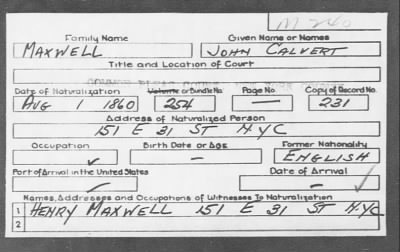 M 240
Family Name Given Name or Names
MAXWELL JOHN CALVERT
Title and Location of Court
COMMON PLEAS COURT, NEW YORK COUNTY
Date of Naturalization Volume or Bundle No. Page No. Copy of Record No.
AUG 1 1860 254 — 231
Address of Naturalized Person
151 E 31 ST NYC
Occupation Birth Date or Age Former Nationality
✓ — ENGLISH
Port of Arrival in the United States Date of Arrival
— — ✓
Names, Addresses and Occupations of Witnesses To Naturalization
1 HENRY MAXWELL 151 E 31 ST NYC
2